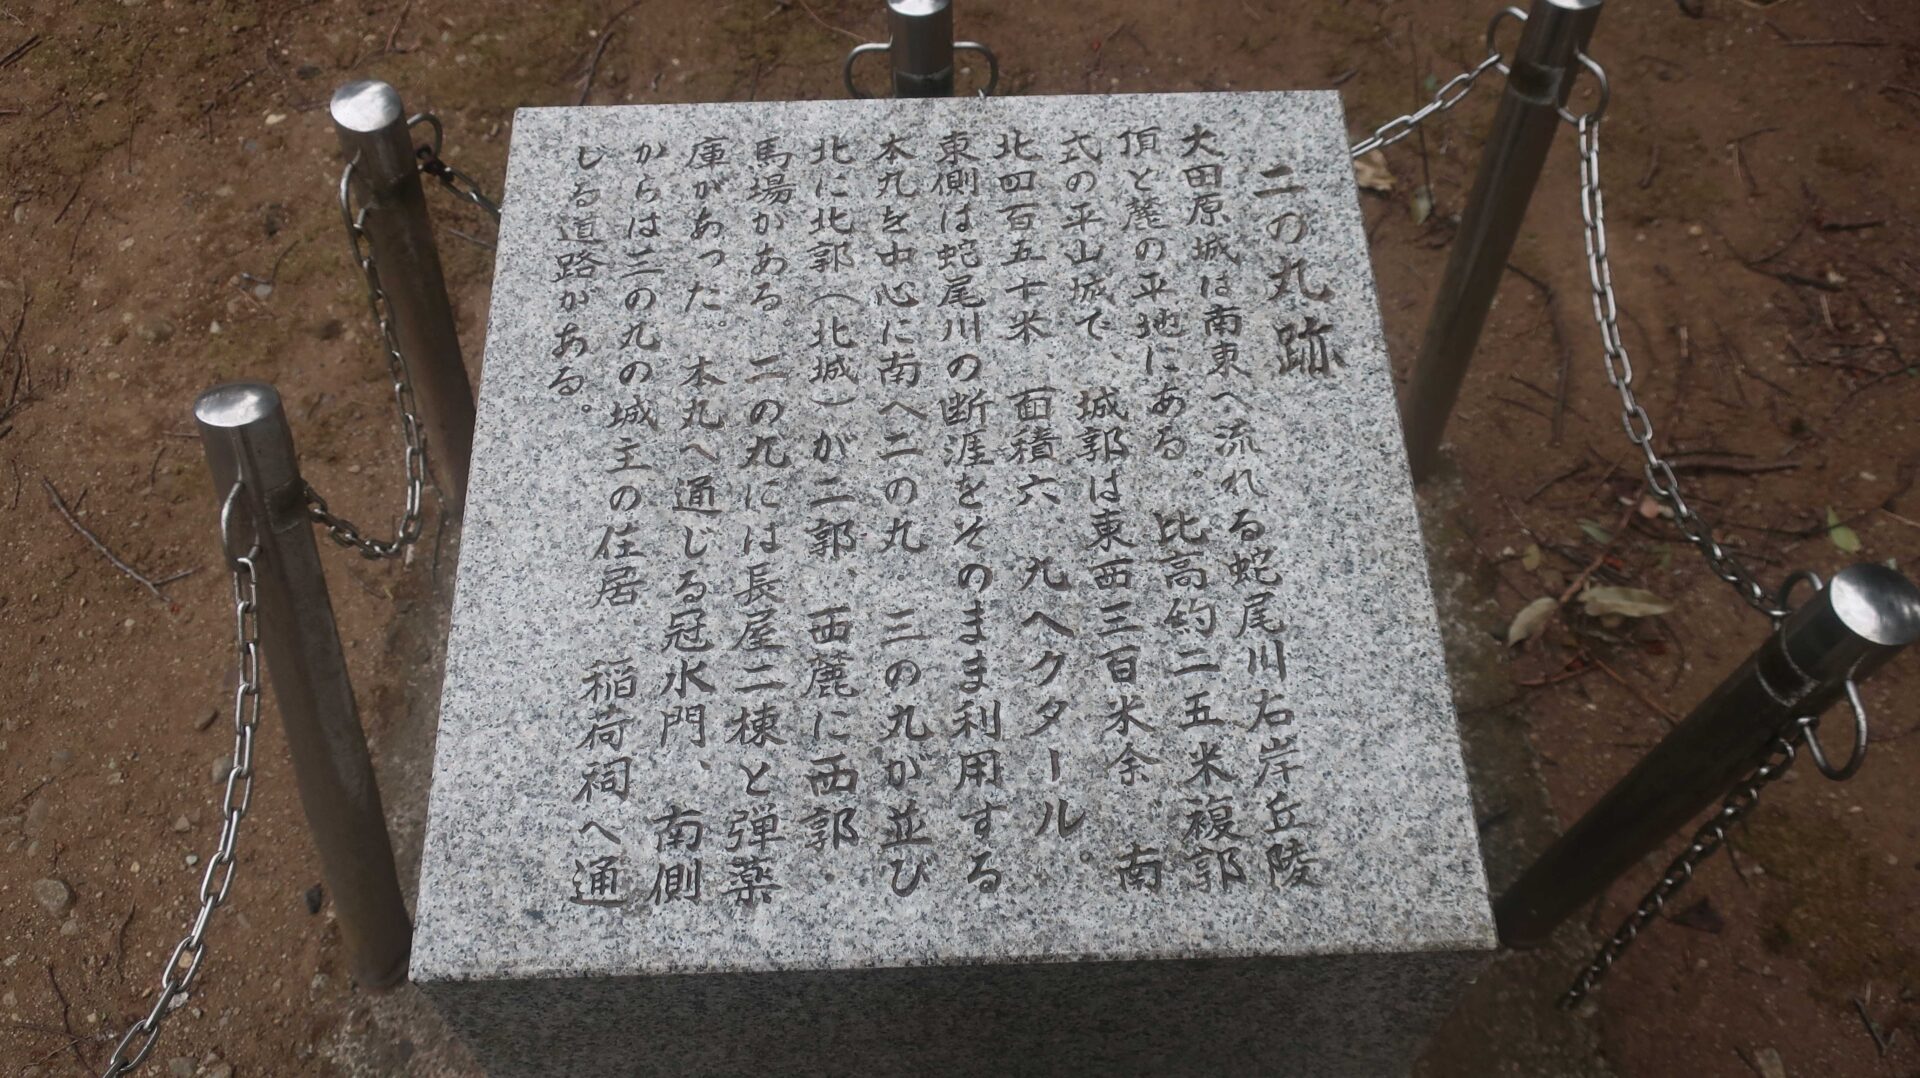 二の丸跡
大田原城は南東へ流れる蛇尾川右岸丘陵
頂と麓の平地にある。比高約二五米複郭
式の平山城で、城郭は東西三百米余、南
北四百五十米、面積六・九ヘクタール。
東側は蛇尾川の断涯をそのまま利用する
本丸を中心に南へ二の丸・三の丸が並び
北に北郭（北城）が二郭、西麓に西郭・
馬場がある。二の丸には長屋二棟と弾薬
庫があった。本丸へ通じる冠水門、南側
からは三の丸の城主の住居・稲荷祠へ通
じる道路がある。